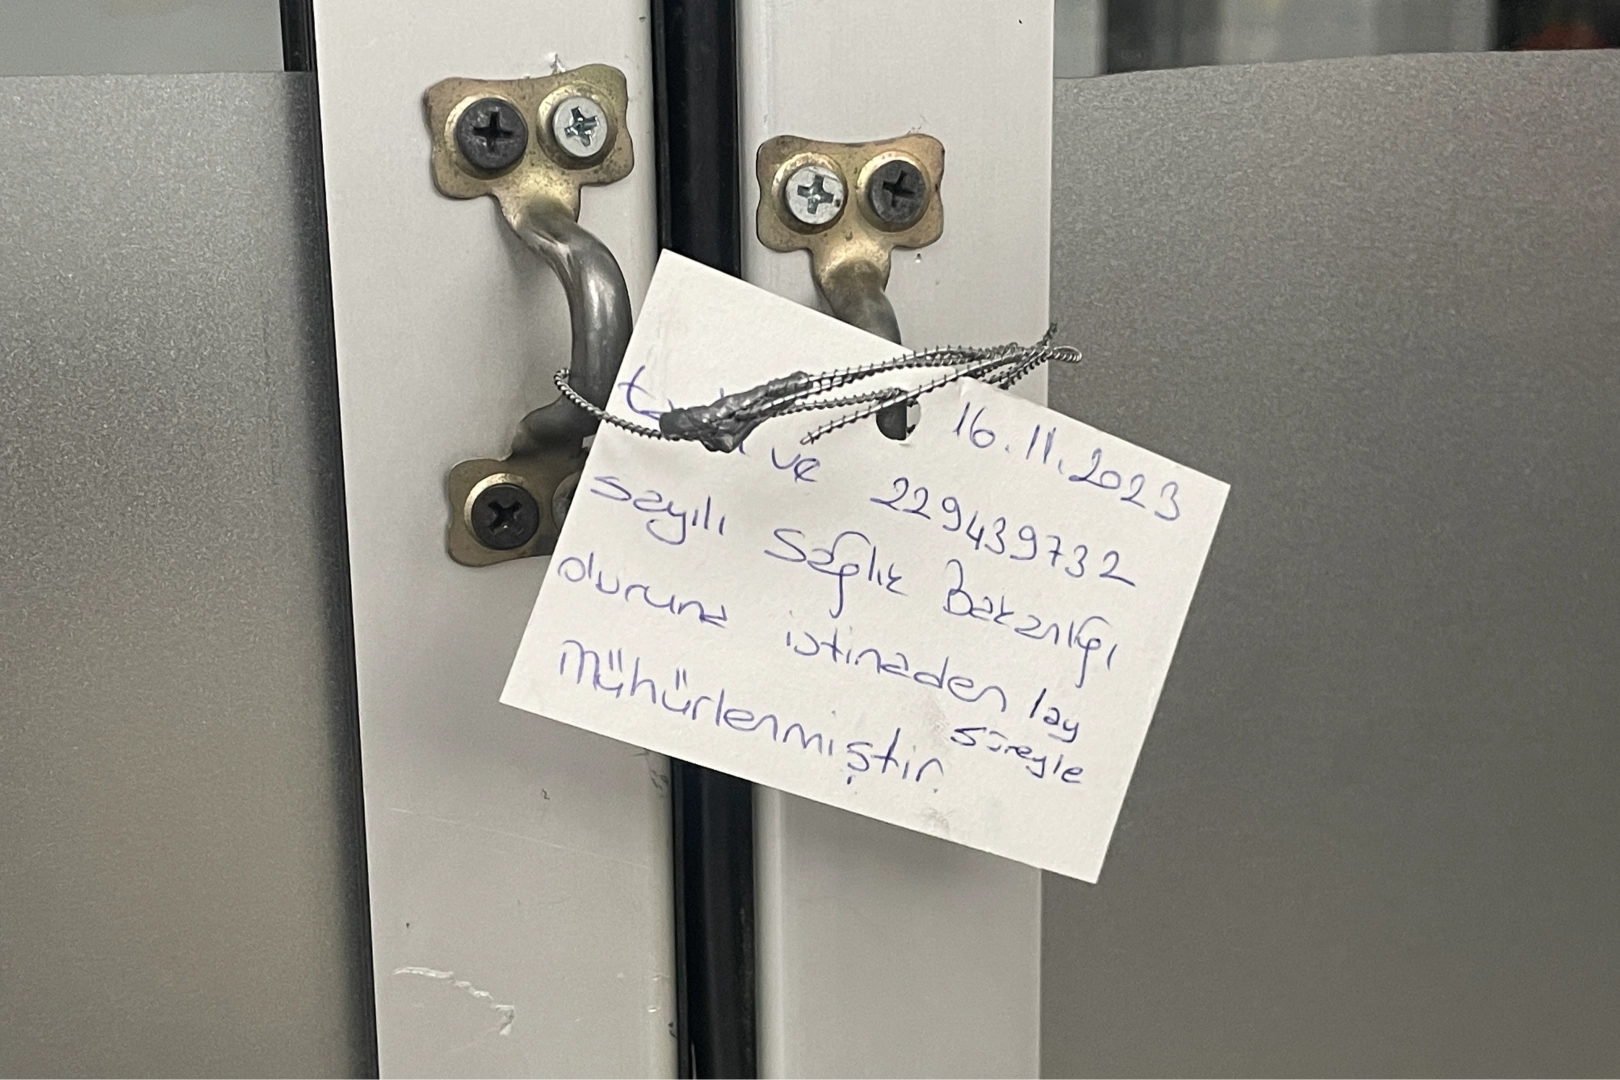 16.11.2023
ve 229439732
sayılı Sağlık Bakanlığı
oluruna istinaden 1ay
süreyle
Mühürlenmıştır.